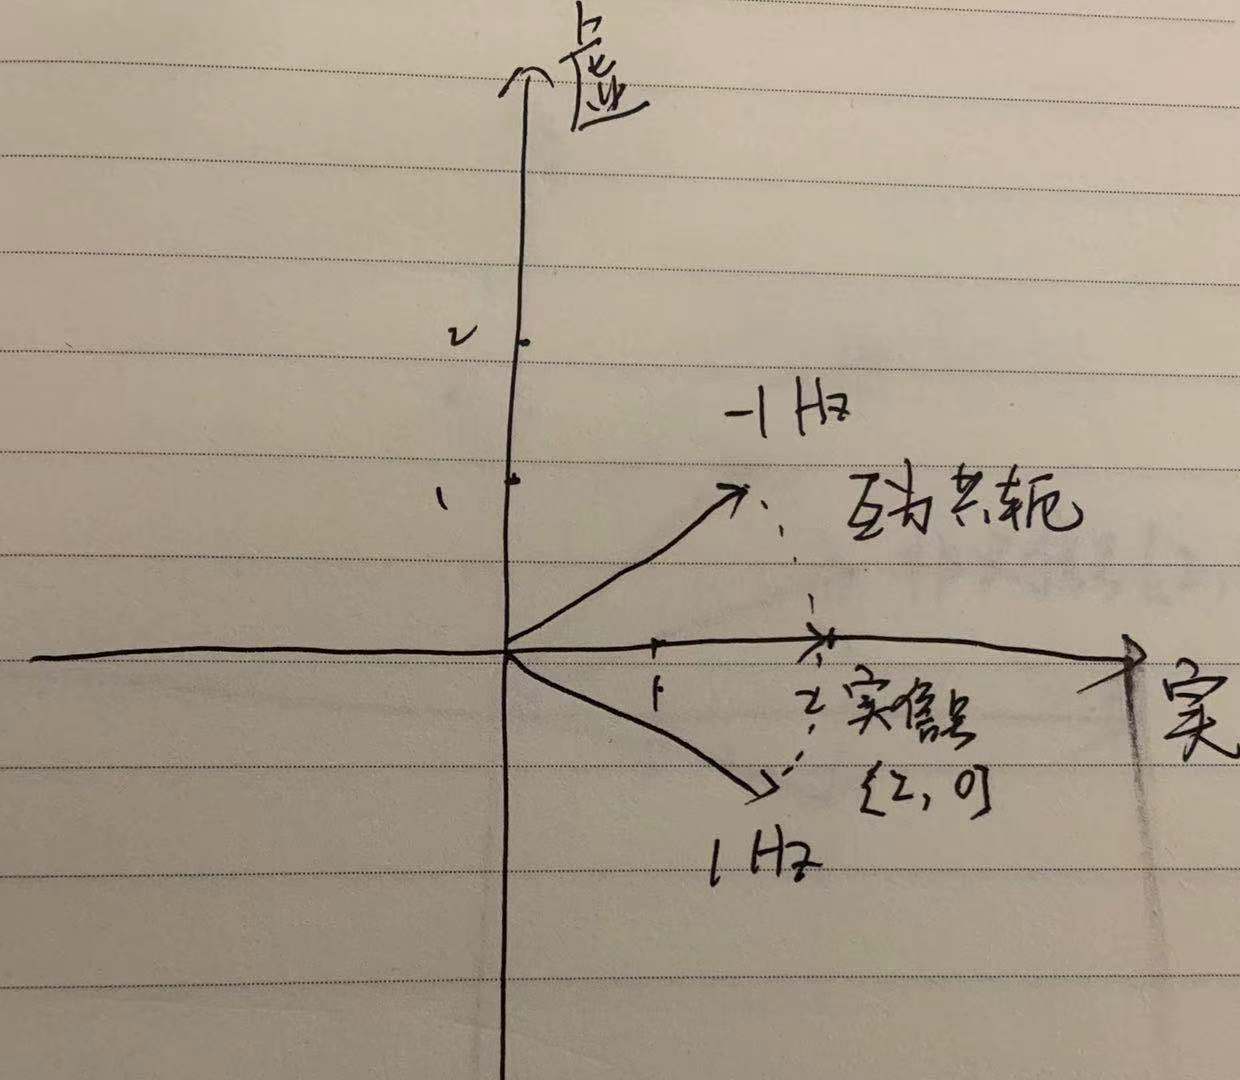 虚
2
-1 Hz
1
互为共轭
1
2
实信号
实
[2, 0]
1 Hz